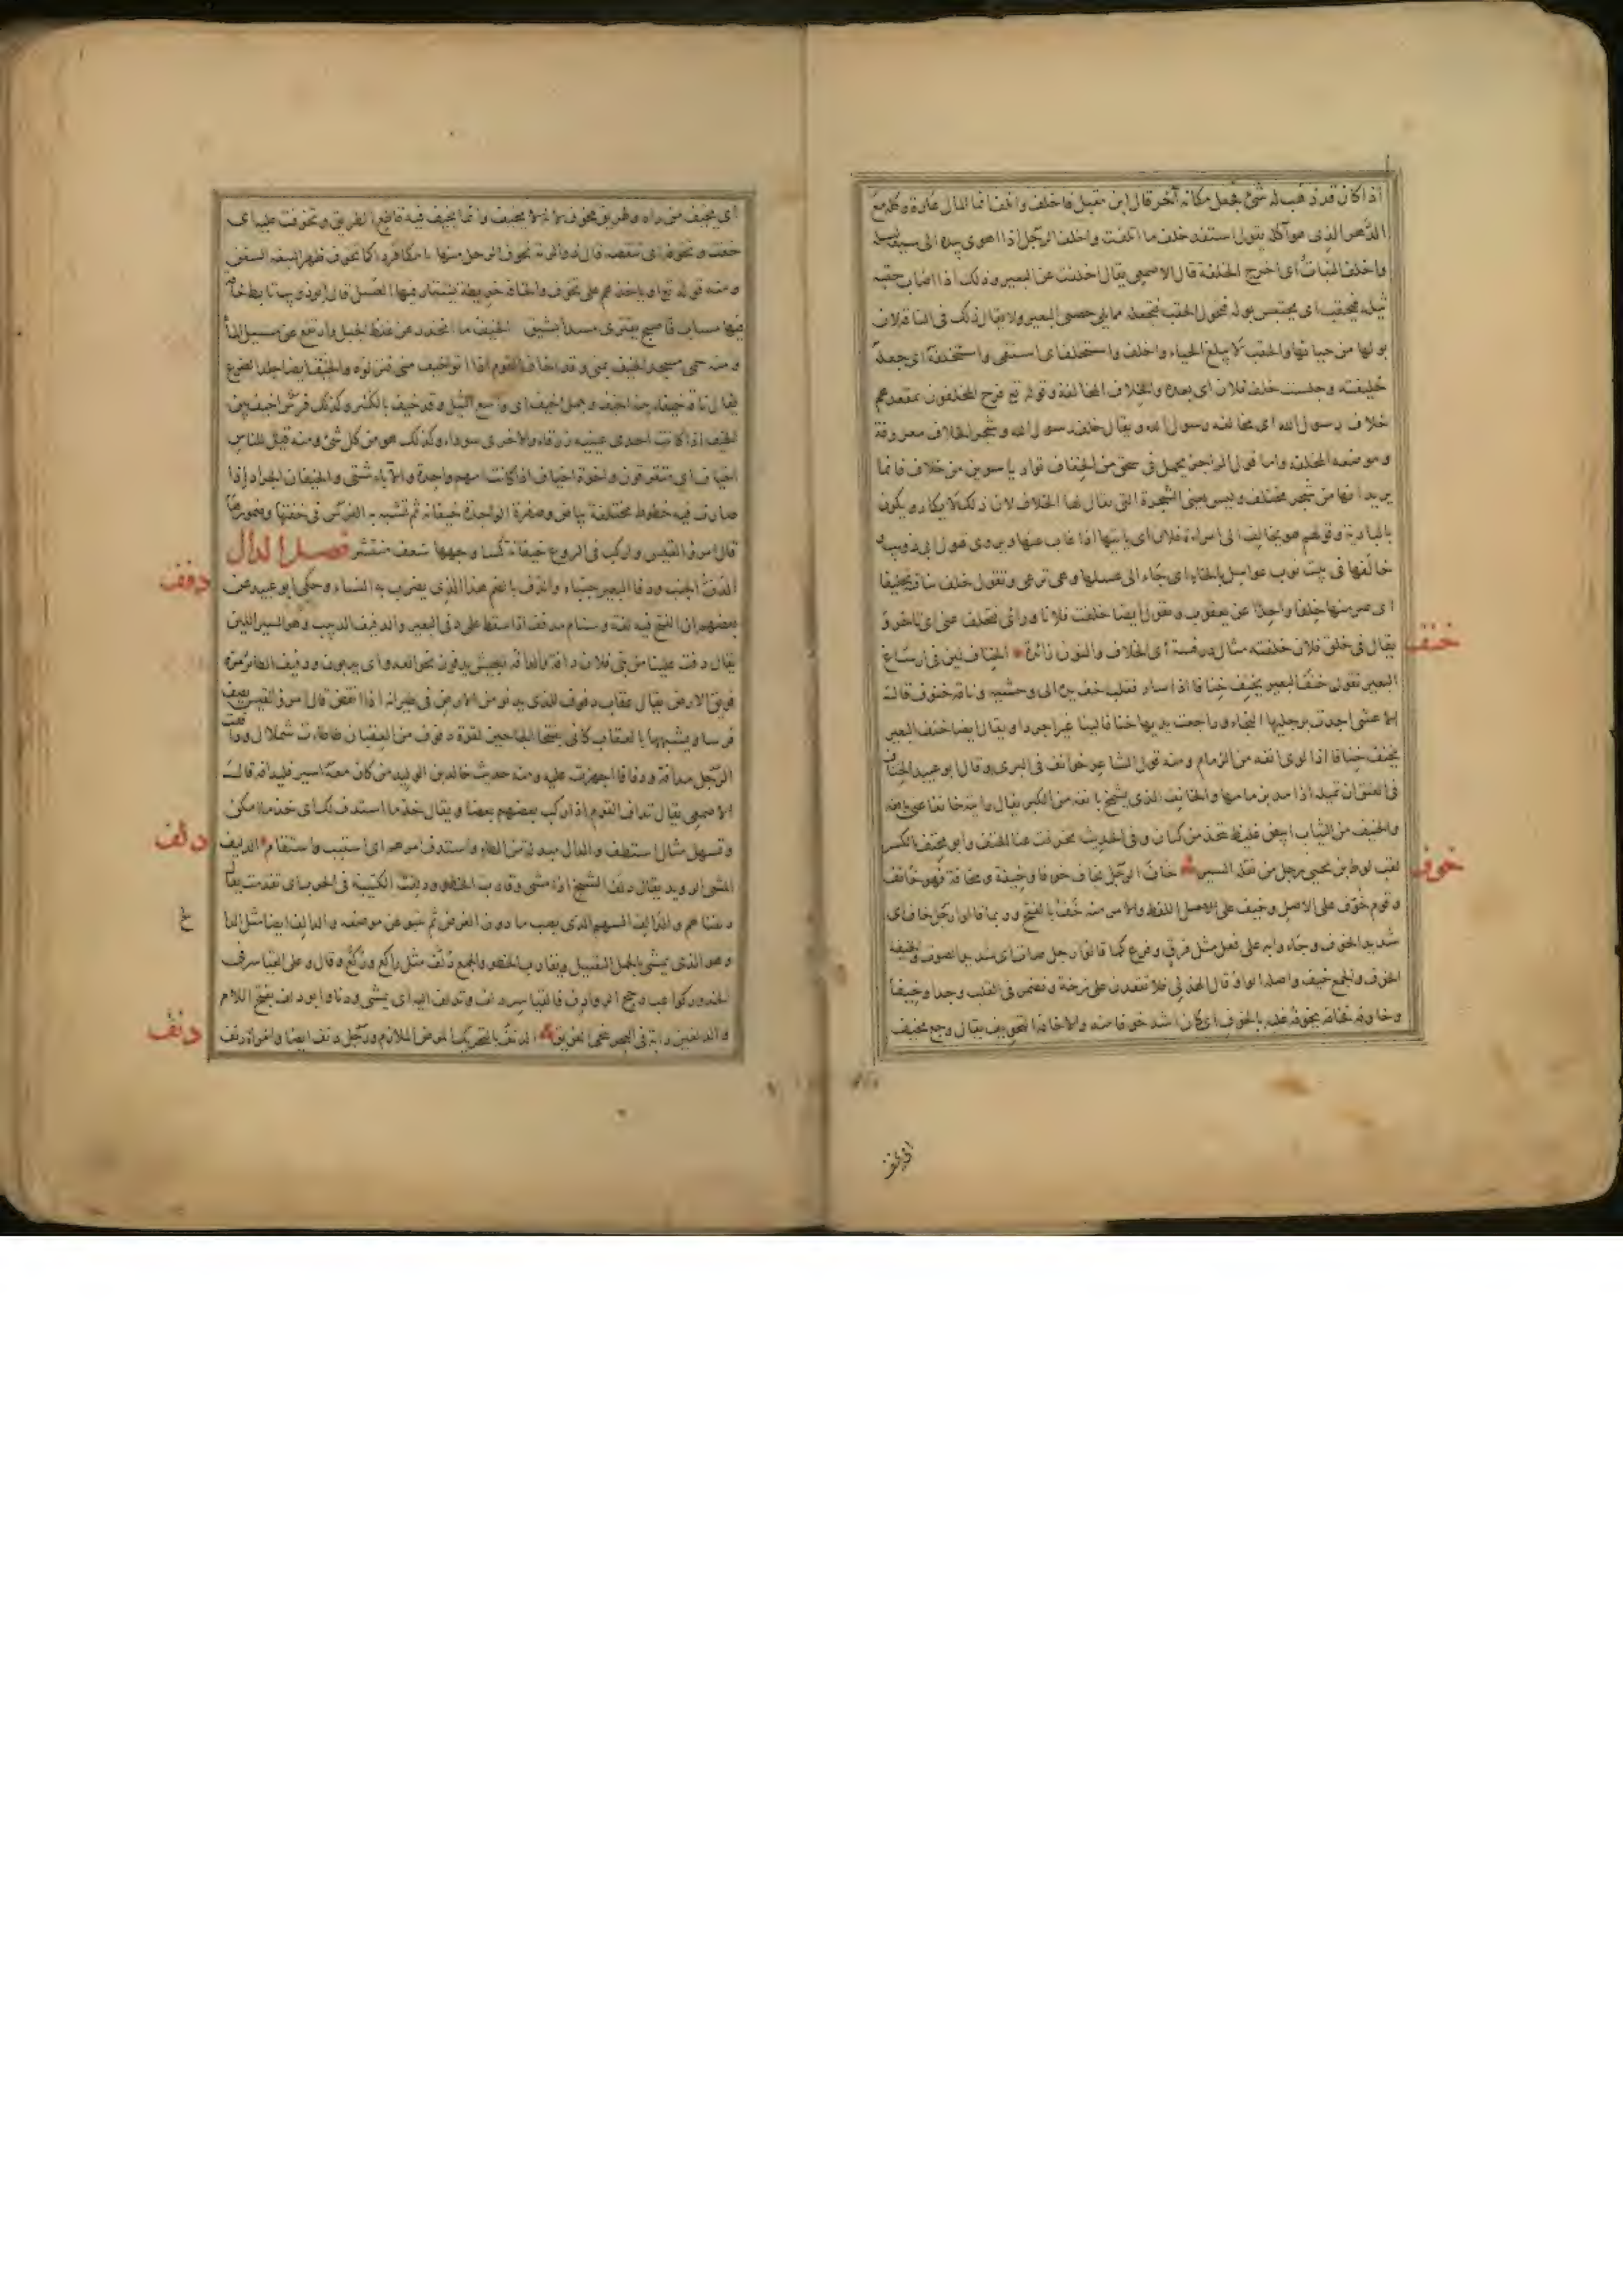 اذا كان قد ذهب له شئ فجعل مكانه آخر قال ابن مقبل فاخلف واتلف انما المال عارة وكله مع
الدهر الذى هو آكله يقول استفد خلف ما اتلفت واخلف الرجل اذا اهوى بيده الى سيفه ليسله
واخلف النبات اى اخرج الخلفة قال الاصمعى يقال اخلفت عن البعير وذلك اذا اصاب حقبه
ثيله فيحقب اى يحتبس بوله فتحول الحقب فتجعله مما يلى خصى البعير ولا يقال ذلك فى الناقة لان
بولها من حيائها والحقب لا يبلغ الحياء واخلف واستخلف اى استقى واستخلفه اى جعله
خليفته وجلست خلف فلان اى بعده والخلاف المخالفة وقوله تع فرح المخلفون بمقعدهم
خلاف رسول الله اى مخالفة رسول الله ويقال خلف رسول الله وشجر الخلاف معروفة
وموضعه المخلفة واما قول الراجز يحمل فى سحق من الخفاف تواديا سوين من خلاف فانما
يريد انها من شجر مختلف وليس يعنى الشجرة التى يقال لها الخلاف لان ذلك لا يكاد ويكون
بالبادية وقولهم هو يخالف الى امراة فلان اى ياتيها اذا غاب عنها ويروى قول ابى ذويب
خالفها فى بيت نوب عواسل بالخاء اى جاء الى عسلها وهى ترعى وتقول خلف بناقتك
اى صر منها خلفا واحدا عن يعقوب وتقول ايضا خلفت فلانا ورائى فتخلف عنى اى تاخر و
يقال فى خلق فلان خلفنة مثال درفسة اى الخلاف والنون زائدة الخناف لين فى ارساغ
البعير تقول خنف البعير يخنف خنافا اذا سار فقلب خف يده الى وحشيه وناقة خنوف قال
الاعشى اجدت برجليها النجاء وراجعت يداها خنافا لينا غير اجردا ويقال ايضا خنف البعير
يخنف خنافا اذا لوى انفه من الزمام ومنه قول الشاعر خوانف فى البرى وقال ابو عبيد الخناف
فى العنق ان تميله اذا مد بزمامها والخانف الذى يشمخ بانفه من الكبر يقال رايته خانفا عنى بانفه
والخنيف من الثياب ابيض غليظ يتخذ من كتان وفى الحديث تخرقت عنا الخنف وابو مخنف بالكسر
لقب لوط بن يحيى رجل من نقلة السير خاف الرجل يخاف خوفا وخيفة ومخافة فهو خائف
وقوم خوف على الاصل وخيف على اللفظ والامر منه خف بالفتح وربما قالوا رجل خاف اى
شديد الخوف وجاؤا به على فعل مثل فرق وفزع كما قالوا رجل صات اى شديد الصوت والخيفة
الخوف والجمع خيف واصله الواو قال الهذلى فلا تقعدن على زخة وتضمر فى القلب وجدا وخيفا
وخاوفه فخافه يخوفه غلبه بالخوف اى كان اشد خوفا منه والاخافة التخويف يقال وجع مخيف
خنف
خوف
اى يخيف
اى يخيف من رآه وطريق مخوف لانه لا يخيف وانما يخيف فيه قاطع الطريق وتخوفت عليه اى
خفت وتخوفه اى تنقصه قال ذو الرمة تخوف الرحل منها تامكا قردا كما تخوف ظهر النبعة السفن
ومنه قوله تع او ياخذهم على تخوف والخافة خريطة يشتار فيها العسل قال ابو ذويب تابط خافة
فيها مساب فاصبح يقترى مسدا بشيق الخيف ما انحدر من غلظ الجبل وارتفع عن مسيل الماء
ومنه سمى مسجد الخيف بمنى وقد اخاف القوم اذا اتوا خيف منى فنزلوه والخيف ايضا جلد الضرع
يقال ناقة خيفاء بينة الخيف وجمل اخيف اى واسع الثيل وقد خيف بالكسر وكذلك فرس اخيف بين
الخيف اذا كانت احدى عينيه زرقاء والاخرى سوداء وكذلك هو من كل شئ ومنه قيل للناس
اخياف اى متفرقون واخوة اخياف اذا كانت امهم واحدة والآباء شتى والخيفان الجراد اذا
صارت فيه خطوط مختلفة بياض وصفرة الواحدة خيفانة ثم تشبه به الفرس فى خفتها وضمورها
قال امرؤ القيس واركب فى الروع خيفانة كسا وجهها سعف منتشر فصل الدال
الدف الجنب ودفا البعير جنباه والدف بالضم هذا الذى يضرب به النساء وحكى ابو عبيد عن
بعضهم ان الفتح فيه لغة وسنام مدفف اذا سقط على دفى البعير والدفيف الدبيب وهو السير اللين
يقال دفت علينا من بنى فلان دافة والدافة الجيش يدفون نحو العدو اى يدبون ودفيف الطائر مره
فويق الارض يقال عقاب دفوف للذى يدنو من الارض فى طيرانه اذا انقض قال امرؤ القيس يصف
فرسا ويشبهها بالعقاب كانى بفتخاء الجناحين لقوة دفوف من العقبان طاطات شملال وداففت
الرجل مدافة ودفافا اجهزت عليه ومنه حديث خالد بن الوليد من كان معه اسير فليدافه قال
الاصمعى يقال تداف القوم اذا ركب بعضهم بعضا ويقال خذ ما استدف لك اى خذ ما امكن
وتسهل مثل استطف والدال مبدلة من الطاء واستدف امرهم اى استتب واستقام الدليف
المشى الرويد يقال دلف الشيخ اذا مشى وقارب الخطو ودلفت الكتيبة فى الحرب اى تقدمت يقال
دلفناهم والدالف السهم الذى يصيب ما دون الغرض ثم ينبو عن موضعه والدالف ايضا مثل الدالح
وهو الذى يمشى بالحمل الثقيل ويقارب الخطو والجمع دلف مثل راكع وركع وقال وعلى القياسر فى
الخدور كواعب رجح الروادف فالقياسر دلف وتدلف اليه اى يمشى ودنا وابو دلف بفتح اللام
والدلفين دابة فى البحر تنجى الغريق الدنف بالتحريك المرض الملازم ورجل دنف ايضا وامراة دنف
دفف
دلف
دنف